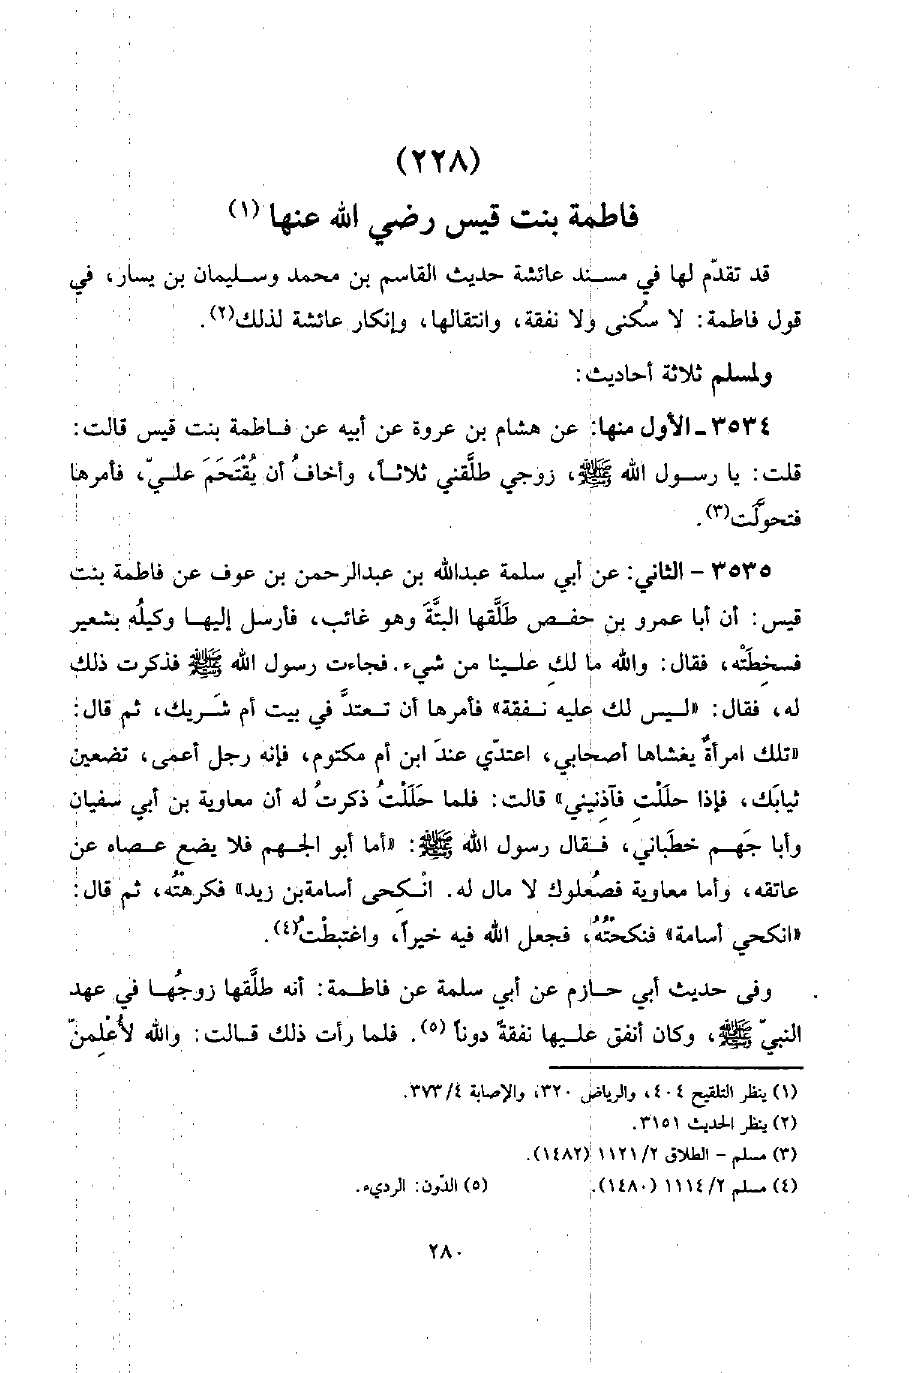 (٢٢٨)
فاطمة بنت قيس رضي الله عنها (١)
قد تقدّم لها في مسند عائشة حديث القاسم بن محمد وسليمان بن يسار، في
قول فاطمة: لا سُكنى ولا نفقة، وانتقالها، وإنكار عائشة لذلك(٢).
ولمسلم ثلاثة أحاديث:
٣٥٣٤ ـ الأول منها: عن هشام بن عروة عن أبيه عن فاطمة بنت قيس قالت:
قلت: يا رسول الله ﷺ، زوجي طلَّقني ثلاثاً، وأخافُ أن يُقْتَحَمَ عليّ، فأمرها
فتحوّلَت(٣).
٣٥٣٥ – الثاني: عن أبي سلمة عبدالله بن عبدالرحمن بن عوف عن فاطمة بنت
قيس: أن أبا عمرو بن حفص طَلَّقها البتَّةَ وهو غائب، فأرسل إليها وكيلُه بشعير
فسخِطَتْه، فقال: والله ما لكِ علينا من شيء. فجاءت رسول الله ﷺ فذكرت ذلك
له، فقال: «ليس لك عليه نفقة» فأمرها أن تعتدَّ في بيت أم شَريك، ثم قال:
«تلك امرأةٌ يغشاها أصحابي، اعتدّي عندَ ابن أم مكتوم، فإنه رجل أعمى، تضعين
ثيابَك، فإذا حلَلْتِ فآذِنيني» قالت: فلما حلَلْتُ ذكرتُ له أن معاوية بن أبي سفيان
وأبا جَهم خطَباني، فقال رسول الله ﷺ: «أما أبو الجهم فلا يضع عصاه عن
عاتقه، وأما معاوية فصُعلوك لا مال له. انْكِحى أسامةبن زيد» فكرهتُه، ثم قال:
«انكحي أسامة» فنكحتُهُ، فجعل الله فيه خيراً، واغتبطْتُ(٤).
وفى حديث أبي حازم عن أبي سلمة عن فاطمة: أنه طلَّقها زوجُها في عهد
النبيّ ﷺ، وكان أنفق عليها نفقةً دوناً (٥). فلما رأت ذلك قالت: والله لأُعْلِمنّ
(١) ينظر التلقيح ٤٠٤، والرياض ٣٢٠، والإصابة ٣٧٣/٤.
(٢) ينظر الحديث ٣١٥١.
(٣) مسلم – الطلاق ١١٢١/٢ (١٤٨٢).
(٤) مسلم ١١١٤/٢ (١٤٨٠). (٥) الدّون: الرديء.
٢٨٠